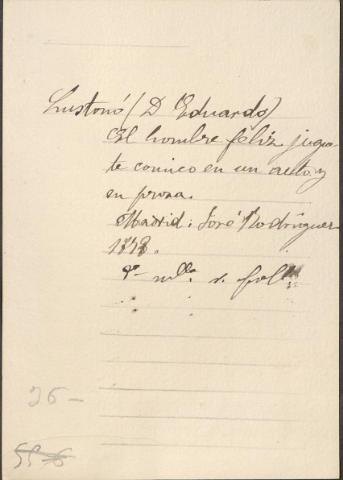 Lustonó (D Eduardo)
El hombre feliz jugue-
te comico en un acto y
en prosa.
Madrid: José Rodriguez
1878.
4º mlla. s. fol
26 -